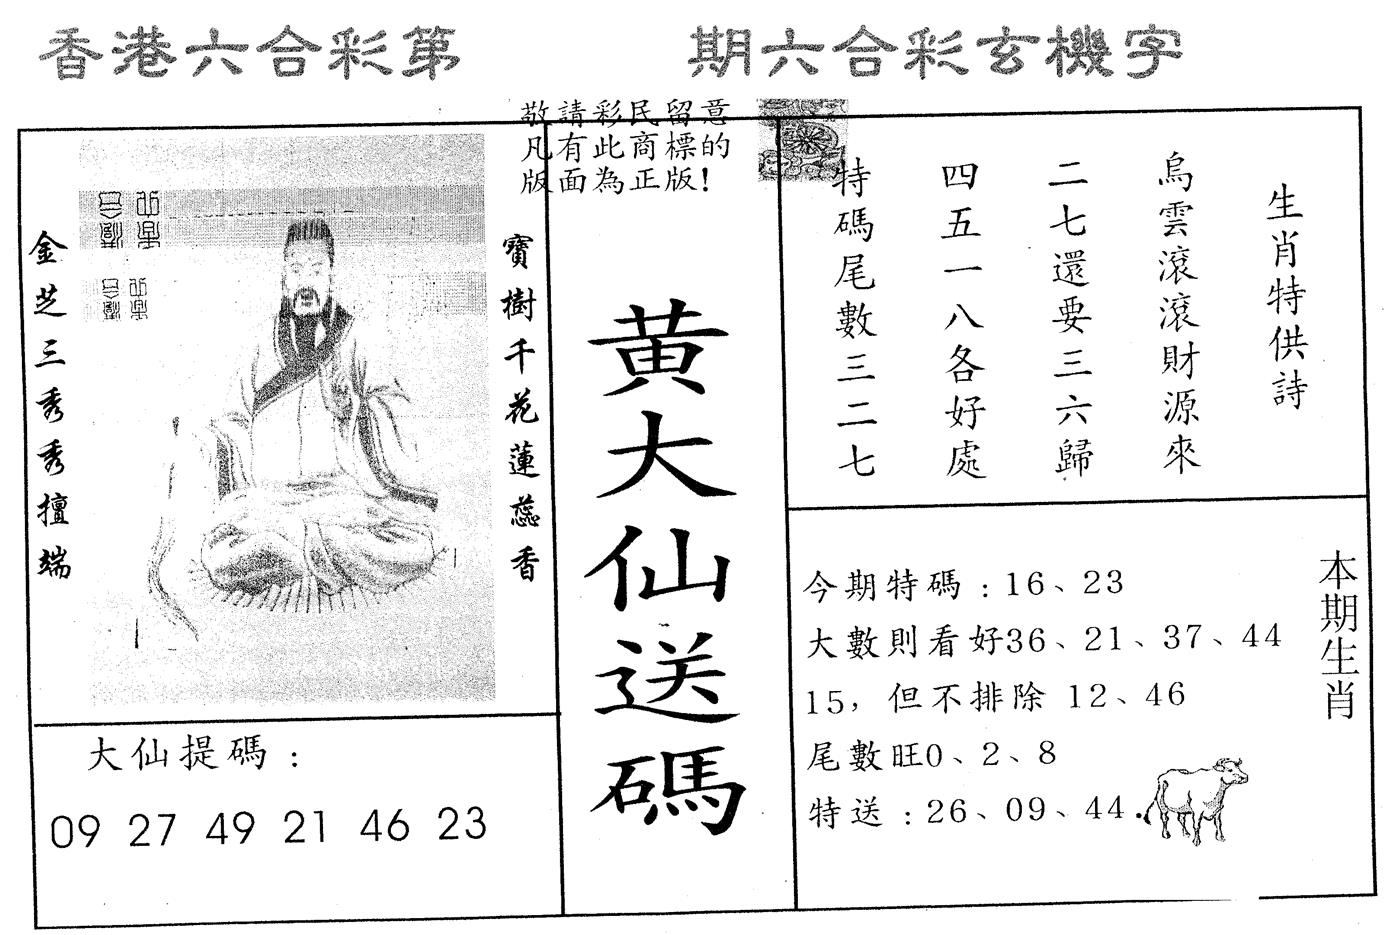 香港六合彩第
期六合彩玄機字
敬請彩民留意
凡有此商標的
版面為正版!
寶樹千花蓮蕊香
金芝三秀秀擅端
大仙提碼：
09 27 49 21 46 23
黃大仙送碼
生肖特供詩
烏雲滾滾財源來
二七還要三六歸
四五一八各好處
特碼尾數三二七
本期生肖
今期特碼：16、23
大數則看好36、21、37、44
15，但不排除 12、46
尾數旺0、2、8
特送：26、09、44.